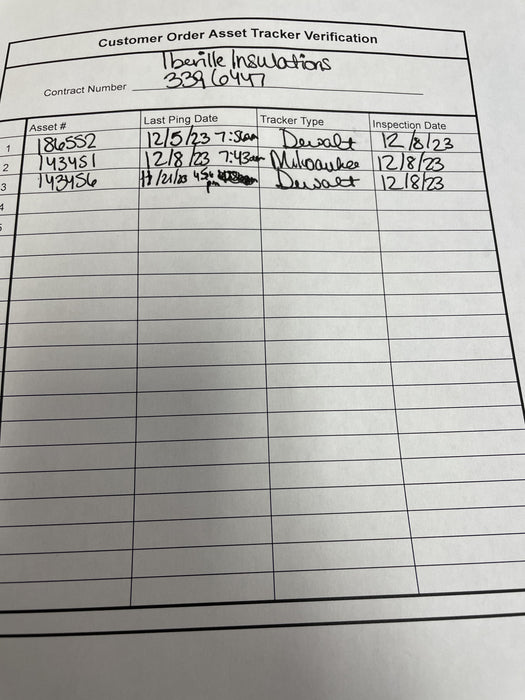 Customer Order Asset Tracker Verification
Iberville Insulations
Contract Number 3396447
Asset # Last Ping Date Tracker Type Inspection Date
1 186552 12/5/23 7:56am Dewalt 12/8/23
2 143451 12/8/23 7:43am Milwaukee 12/8/23
3 143456 11/21/23 Dewalt 12/8/23
pm
4
5